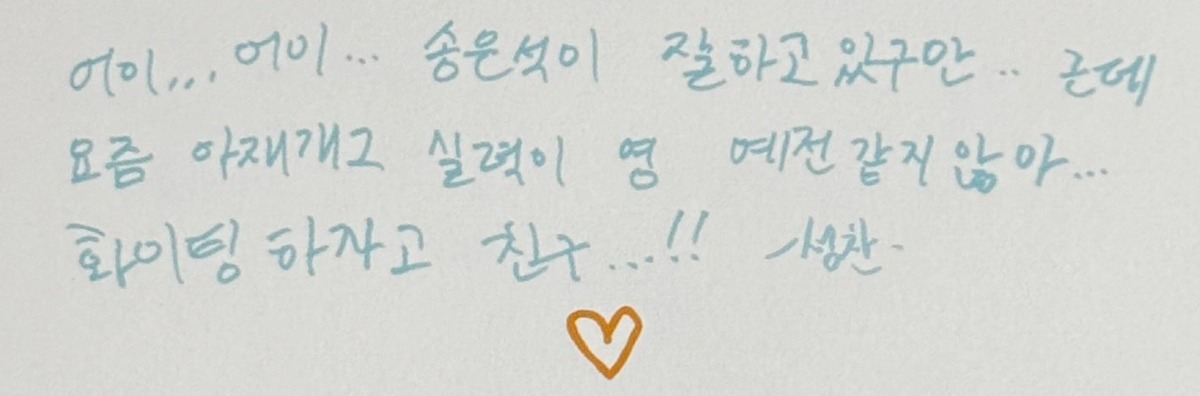 어이,,, 어이... 송은석이 잘하고 있구만.. 근데
요즘 아재개그 실력이 영 예전 같지 않아...
화이팅 하자고 친구...!! -성찬-
♡